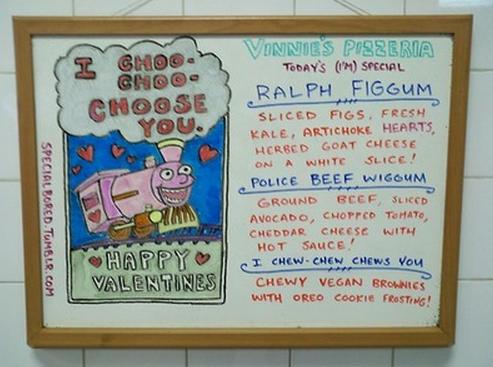 I CHOO-
CHOO-
CHOOSE
YOU.
HAPPY
VALENTINES
SPECIALBORED.TUMBLR.COM
VINNIE'S PIZZERIA
TODAY'S (I'M) SPECIAL
RALPH FIGGUM
SLICED FIGS, FRESH
KALE, ARTICHOKE HEARTS,
HERBED GOAT CHEESE
ON A WHITE SLICE!
POLICE BEEF WIGGUM
GROUND BEEF, SLICED
AVOCADO, CHOPPED TOMATO,
CHEDDAR CHEESE WITH
HOT SAUCE!
I CHEW-CHEW CHEWS YOU
CHEWY VEGAN BROWNIES
WITH OREO COOKIE FROSTING!